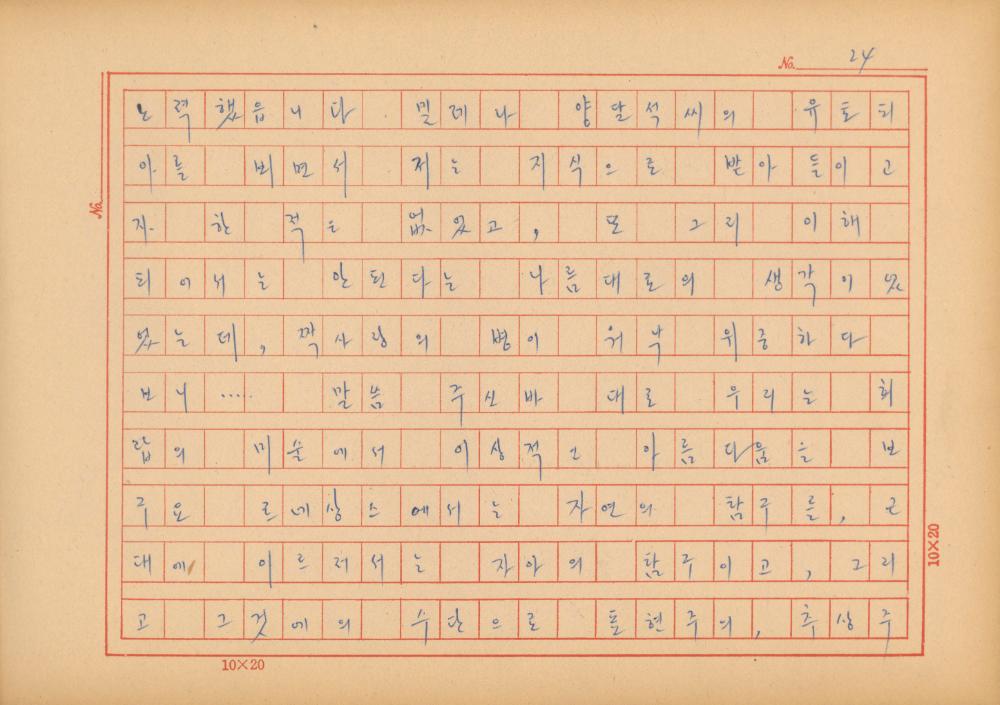 No. 24
노력했읍니다. 밀레나 양달석씨의 유토피
아를 뵈면서 저는 지식으로 받아 들이고
자 한 적은 없었고, 또 그리 이해
되어서는 안된다는 나름대로의 생각이 있
었는데, 짝사랑의 병이 워낙 위중하다
보니..... 말씀 주신바 대로 우리는 희
랍의 미술에서 이상적인 아름다움을 보
구요 르네상스에서는 자연의 탐구를, 근
대에 이르러서는 자아의 탐구이고, 그리
고 그것에의 수단으로 표현주의, 추상주
No.
10×20
10×20